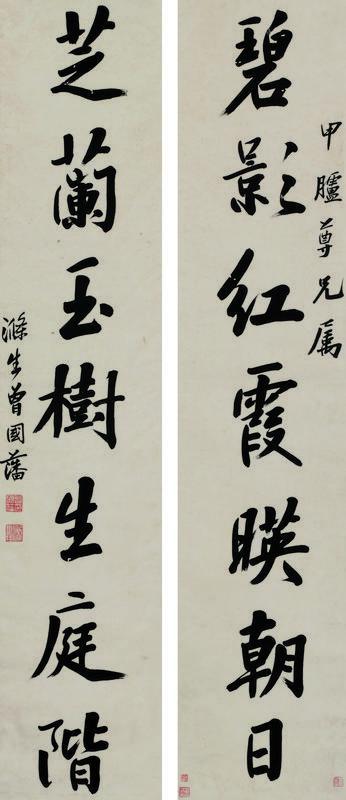 甲臚尊兄属
碧影红霞暎朝日
芝蘭玉樹生庭階
滌生曾國藩